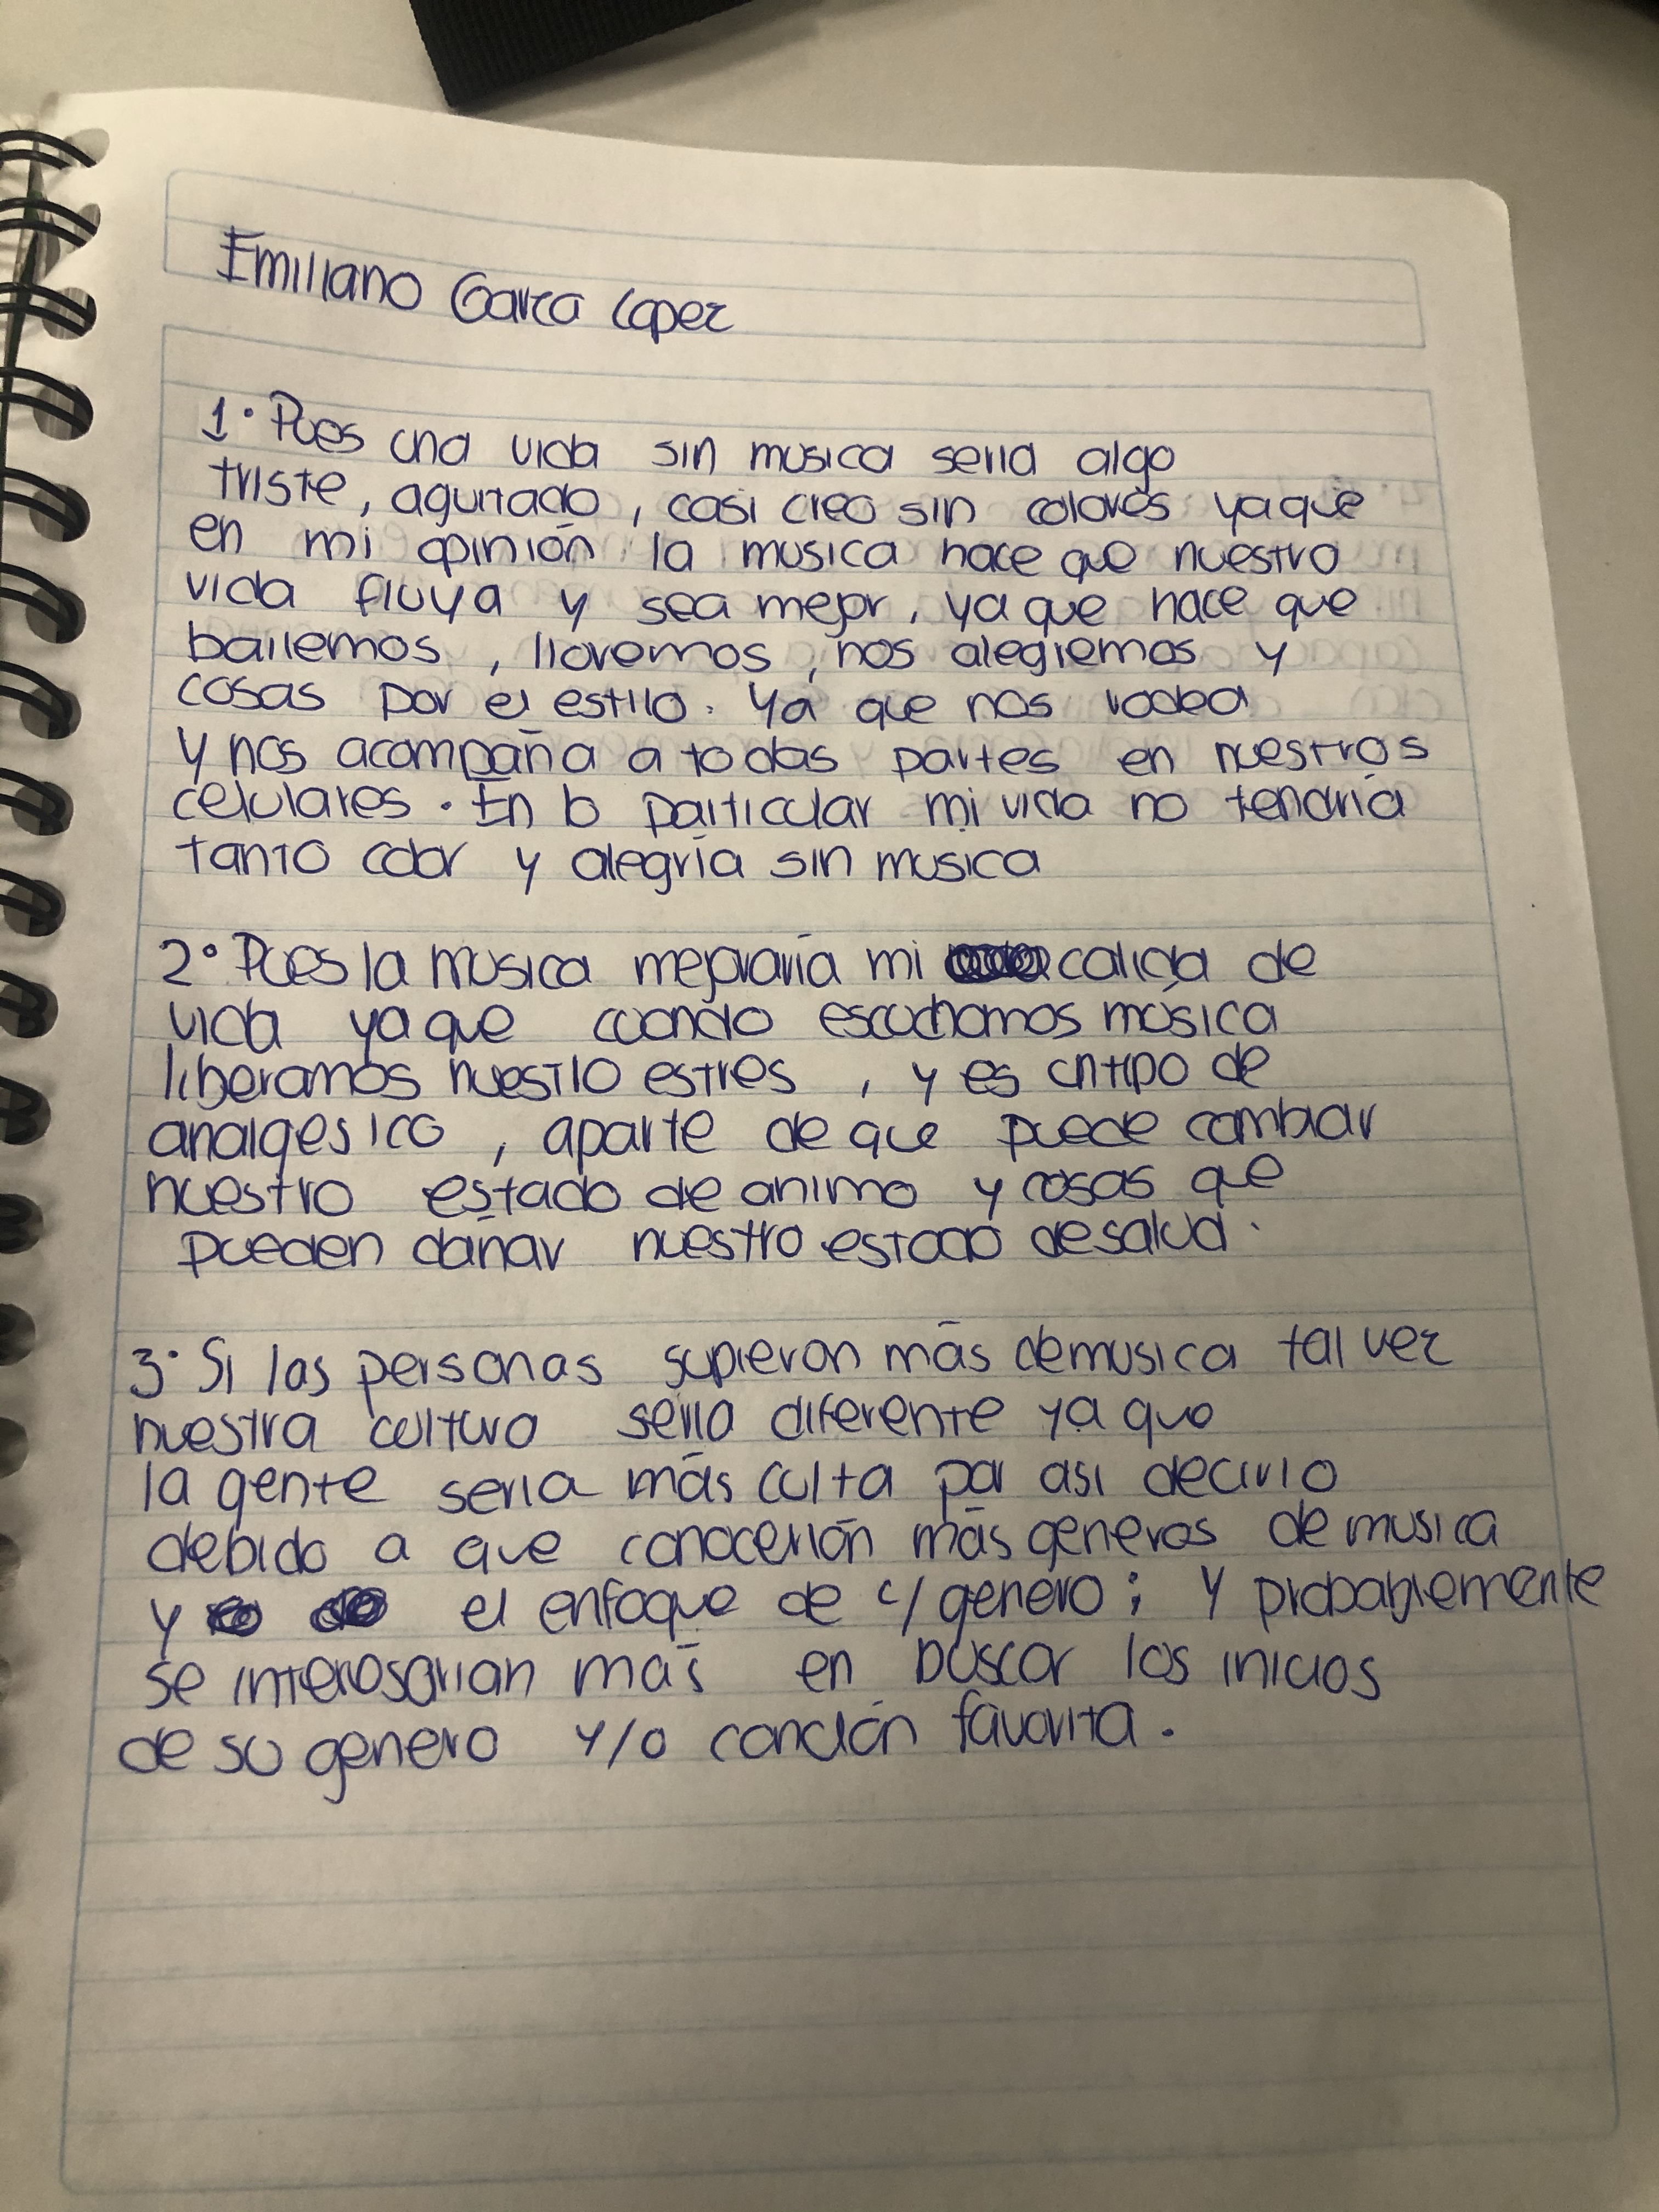 Emiliano Garca Lopez
1. Pues una vida sin musica seria algo
triste, aguitado, casi creo sin colores ya que
en mi opinión la musica hace que nuestro
vida fluya y sea mejor, ya que hace que
bailemos, lloremos, nos alegremos y
cosas por el estilo. Ya que nos rodea
y nos acompaña a todas partes en nuestros
celulares. En lo particular mi vida no tendría
tanto color y alegría sin musica
2° Pues la musica mejoraría mi calida de
vida ya que cuando escuchamos música
liberamos nuestro estres, y es un tipo de
analgesico, aparte de que puede cambiar
nuestro estado de animo y cosas que
pueden dañar nuestro estado de salud.
3. Si las personas supieron más de musica tal vez
nuestra cultura seria diferente ya que
la gente seria más culta por asi decirlo
debido a que conocerían más generos de musica
y el enfoque de c/ genero; y probablemente
se interesarian más en buscar los inicios
de su genero y/o canción favorita.